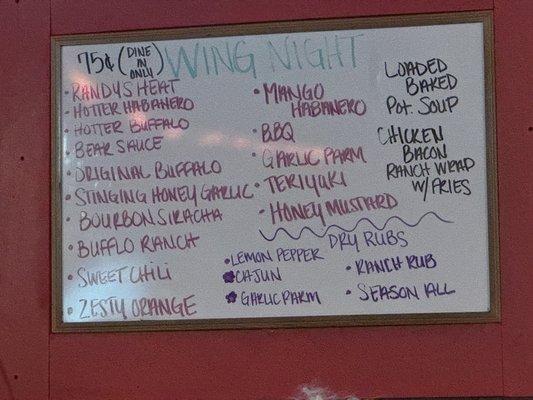 75¢ (DINE IN ONLY) WING NIGHT
• RANDY'S HEAT
• HOTTER HABANERO
• HOTTER BUFFALO
• BEAR SAUCE
• ORIGINAL BUFFALO
• STINGING HONEY GARLIC
• BOURBON SIRACHA
• BUFFLO RANCH
• SWEET CHILI
• ZESTY ORANGE
• MANGO
HABANERO
• BBQ
• GARLIC PARM
• TERIYUKI
• HONEY MUSTARD
DRY RUBS
• LEMON PEPPER
• CAJUN
• GARLIC PARM
• RANCH RUB
• SEASON ALL
LOADED
BAKED
POT. SOUP
CHICKEN
BACON
RANCH WRAP
W/FRIES